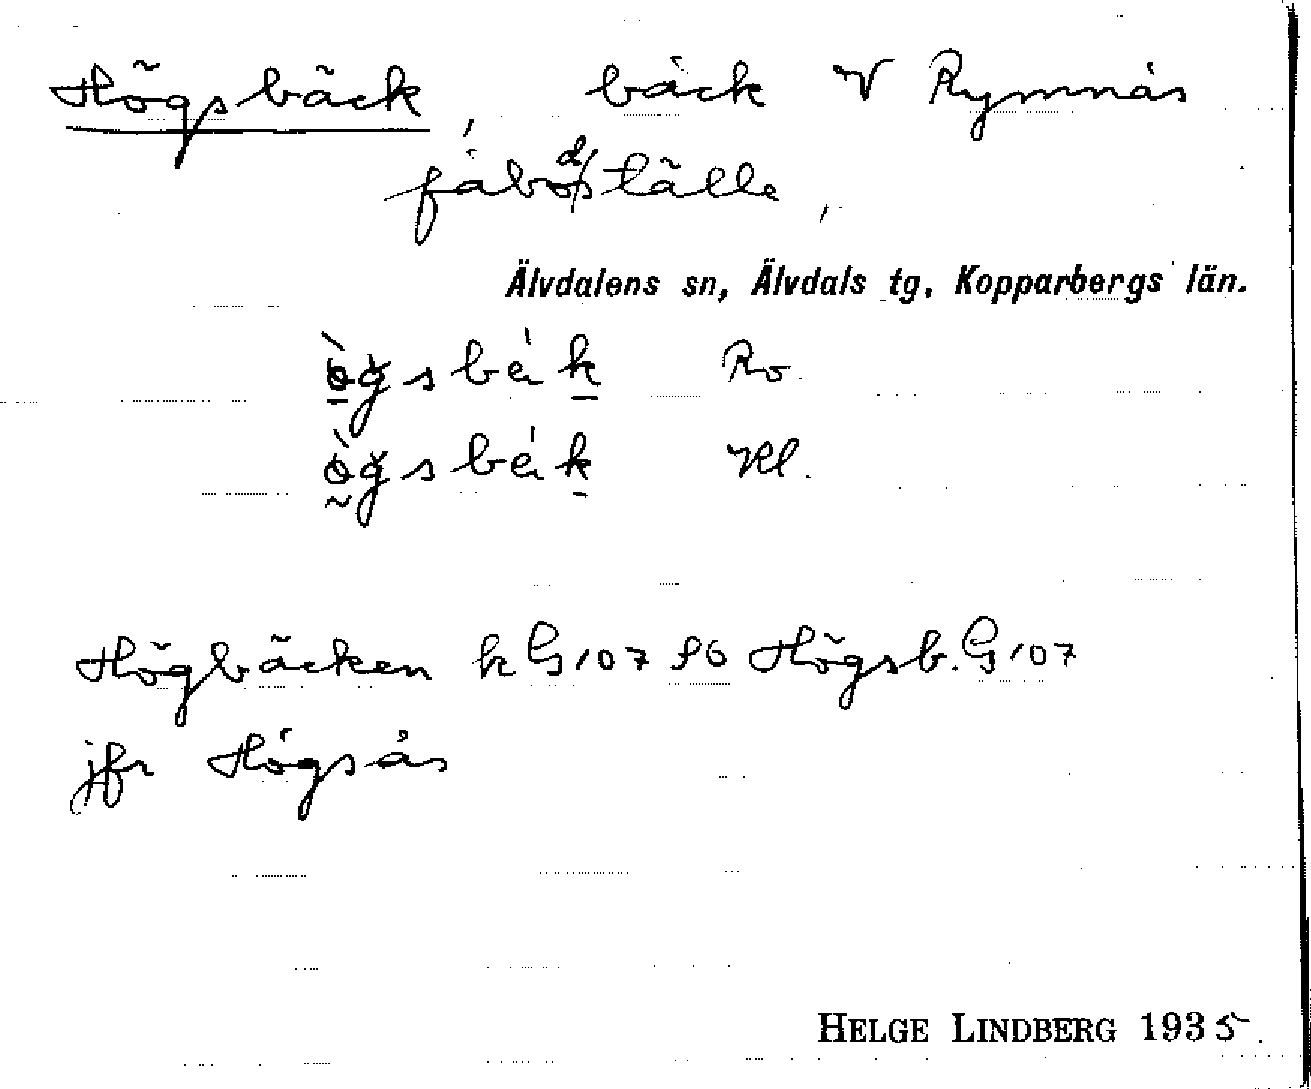 Högsbäck, bäck V Rymnäs
fäbodställe,
Älvdalens sn, Älvdals tg, Kopparbergs län.
ò̱gsbäḵ Ro.
ò̰gsbäḵ Kl.
Högbäcken k G107 SO Högsb. G107
jfr Högsås
HELGE LINDBERG 1935.